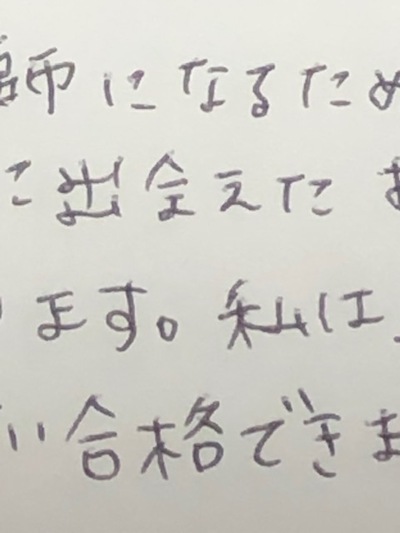 師になるため
に出会えたお
ります。私は、
い合格できま